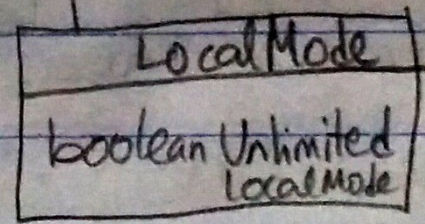 LocalMode
boolean Unlimited
LocalMode